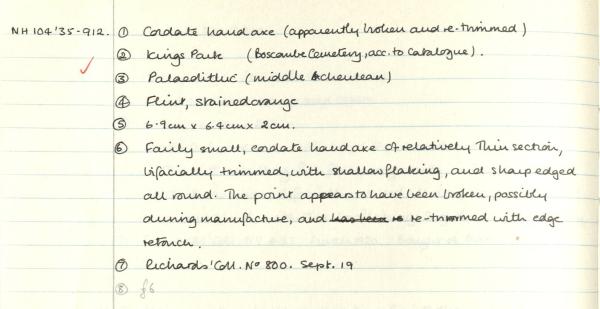 NH 104'35-912. ① Cordate handaxe (apparently broken and re-trimmed)
② Kings Park (Boscombe Cemetery, acc. to Catalogue).
③ Palaeolithic (middle Acheulean)
④ Flint, stained orange
⑤ 6.9cm x 6.4cm x 2cm.
⑥ Fairly small, cordate handaxe of relatively thin section,
bifacially trimmed, with shallow flaking, and sharp edged
all round. The point appears to have been broken, possibly
during manufacture, and has been re re-trimmed with edge
retouch.
⑦ Richards' Coll. No 800. Sept. 19
⑧ f6